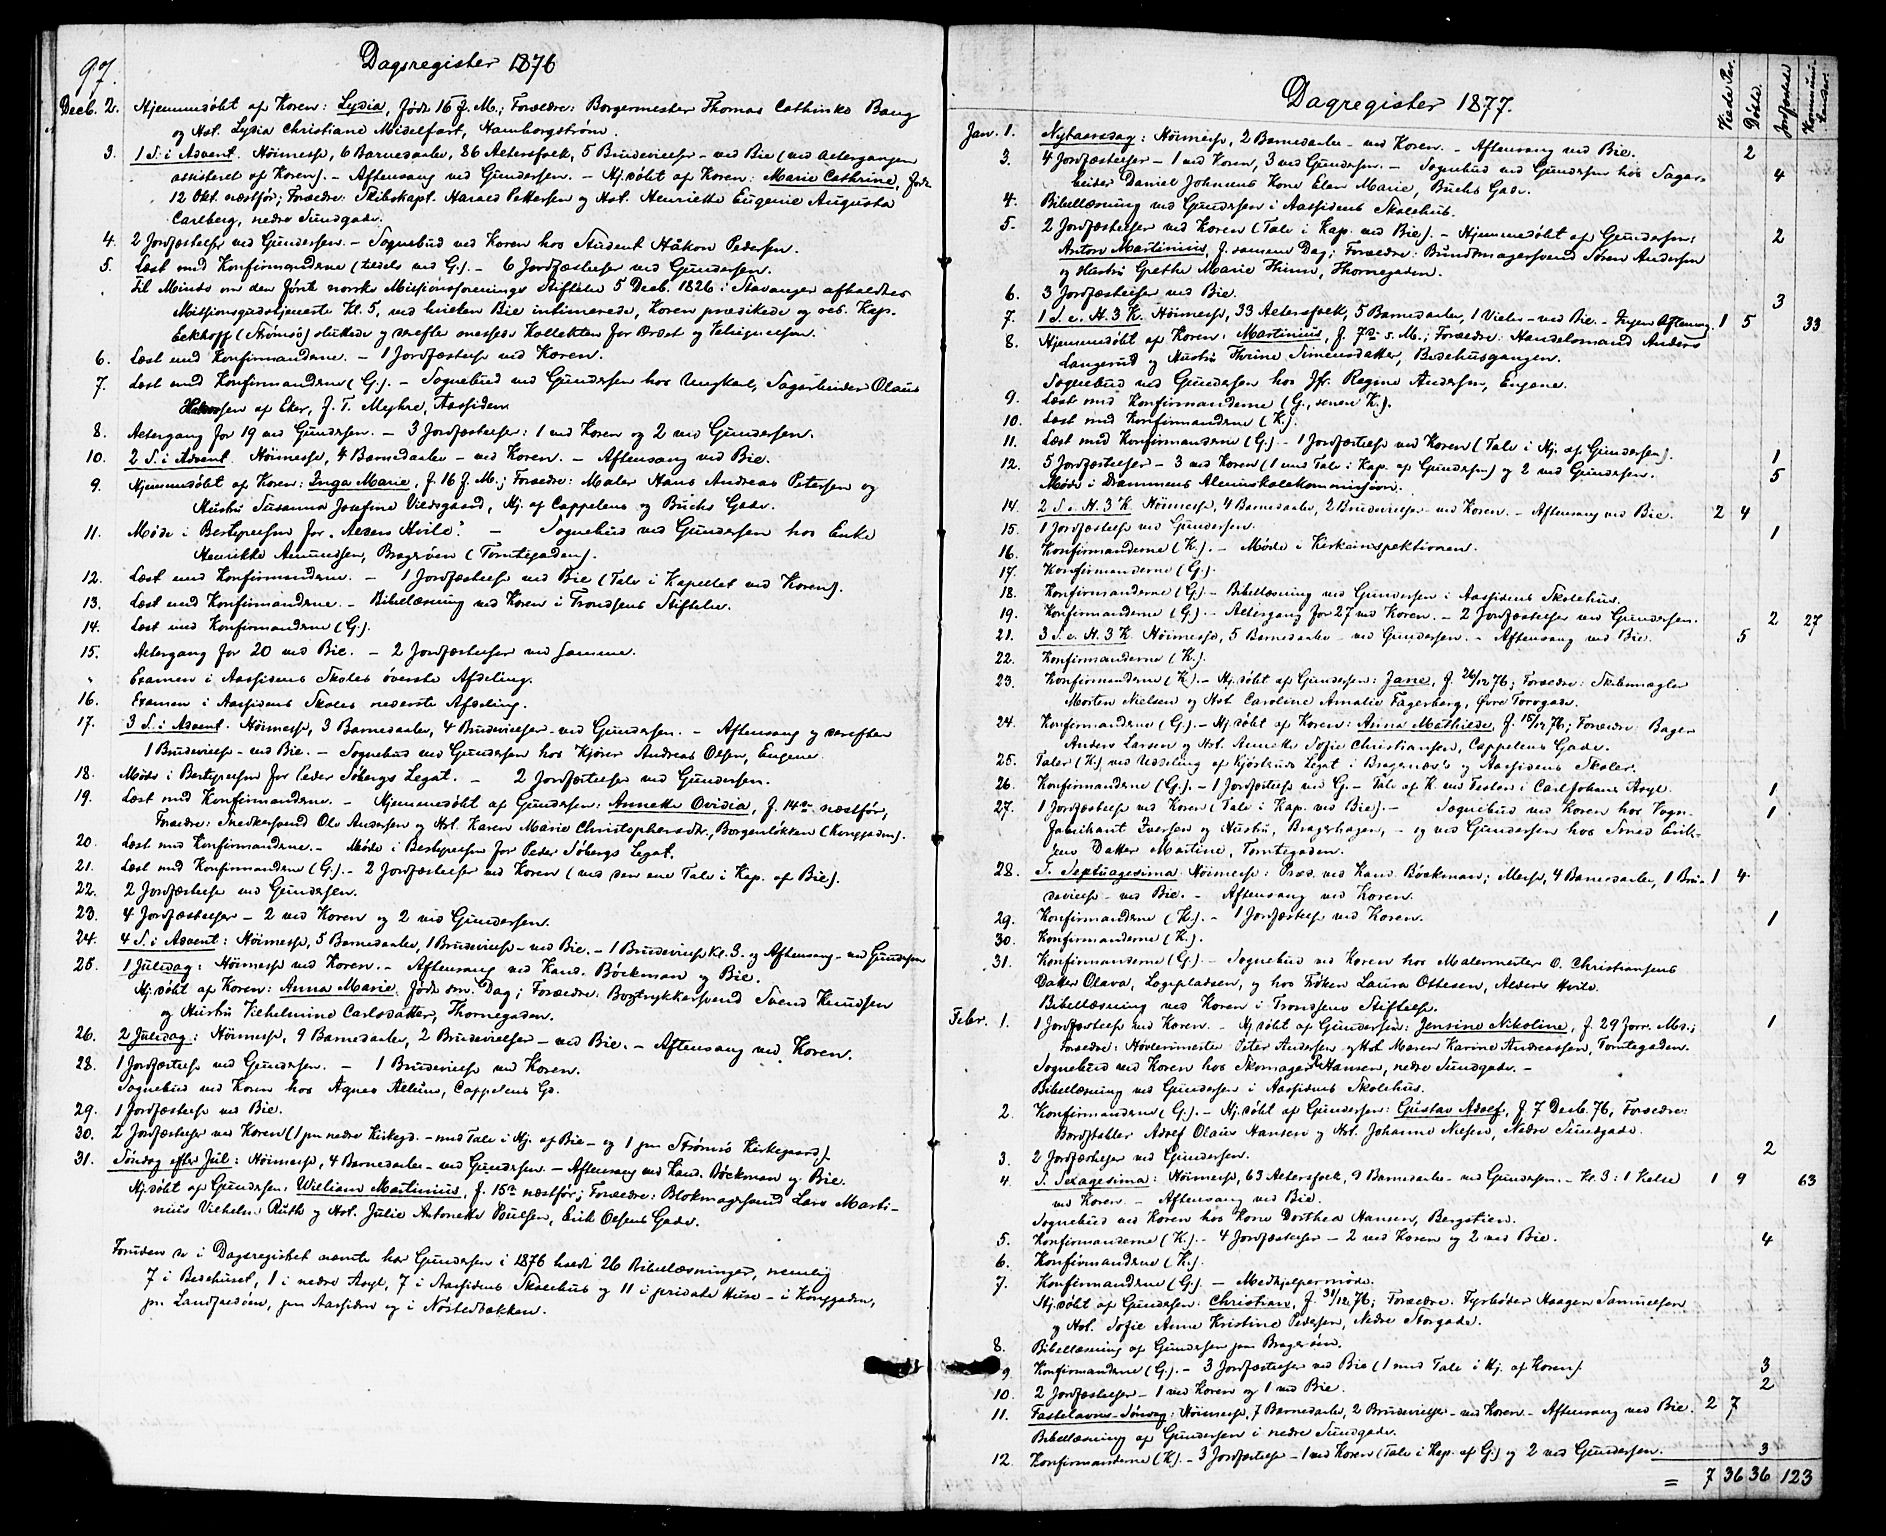 97.
Dagsregister 1876
Decb. 2. Hjemmedöbt af Koren: Lydia, födt 16 f. M.; Forældre: Borgermester Thomas Cathinko Bang
og Hst. Lydia Christiane Midelfart, Hamborgström.
3. 1 S. i Advent. Höimesse, 6 Barnedaaber, 86 Altersfolk, 5 Brudevielser – ved Bie (ved Altergangen
assisteret af Koren). – Aftensang ved Gundersen. – Hj.döbt af Koren: Marie Cathrine, födt
12 Okt. næstfør; Forældre: Skibskapt. Harald Pettersen og Hst. Henriette Eugenie Augusta
Carlberg, nedre Sundgade.
4. 2 Jordfæstelser ved Gundersen. – Sognebud ved Koren hos Student Håkon Pedersen.
5. Læst med Konfirmanderne (tildels ved G.). – 6 Jordfæstelser ved Gundersen.
Til Minde om den förste norske Missionsforenings Stiftelse 5 Decb. 1826 i Stavanger afholdtes
Missionsgudstjeneste Kl. 5, ved hvilken Bie intimerede, Koren prædikede og res. Kap.
Eckhoff (Strömsö) sluttede og derefter messede Kollekten for Ordet og Velsignelsen.
6. Læst med Konfirmanderne. – 1 Jordfæstelse ved Koren.
7. Læst med Konfirmanderne (G.). – Sognebud ved Gundersen hos Ungkarl, Sagarbeider Olaus
Halvorsen af Eker, f. T. Myhre, Aassiden.
8. Altergang for 19 ved Gundersen. – 3 Jordfæstelser: 1 ved Koren og 2 ved Gundersen.
10. 2 S. i Advent. Höimesse, 4 Barnedaaber – ved Koren. – Aftensang ved Bie.
9. Hjemmedöbt af Koren: Inga Marie, f. 16 f. M.; Forældre: Maler Hans Andreas Petersen og
Hustru Susanna Josefine Viedsgaard, Hj. af Cappelens og Buchs Gade.
11. Möde i Bestyrelsen for „Alders Hvile". – Sognebud ved Gundersen hos Enke
Henrikke Amundsen, Bragerøen (Tomtegaden).
12. Læst med Konfirmanderne. – 1 Jordfæstelse ved Bie (Tale i Kapellet ved Koren).
13. Læst med Konfirmanderne. – Bibellæsning ved Koren i Trondsens Stiftelse.
14. Læst med Konfirmanderne (G.).
15. Altergang for 20 ved Bie. – 2 Jordfæstelser ved samme.
" Examen i Aassidens Skoles överste Afdeling.
16. Examen i Aassidens Skoles nederste Afdeling.
17. 3 S. i Advent. Höimesse, 3 Barnedaaber, 4 Brudevielser – ved Gundersen. – Aftensang og derefter
1 Brudevielse – ved Bie. – Sognebud ved Gundersen hos Kjörer Andreas Olsen, Engene.
18. Möde i Bestyrelsen for Peder Söbergs Legat. – 2 Jordfæstelser ved Gundersen.
19. Læst med Konfirmanderne. – Hjemmedöbt af Gundersen: Annette Ovidia, f. 14de næstfør,
Forældre: Snedkersvend Ole Andersen og Hst. Karen Marie Christophersdtr., Borgenlökken (Konggaden).
20. Læst med Konfirmanderne. – Möde i Bestyrelsen for Peder Söbergs Legat.
21. Læst med Konfirmanderne (G.). – 2 Jordfæstelser ved Koren (ved den ene Tale i Kap. af Bie).
22. 2 Jordfæstelser ved Gundersen.
23. 4 Jordfæstelser – 2 ved Koren og 2 ved Gundersen.
24. 4 S. i Advent: Höimesse, 5 Barnedaaber, 1 Brudevielse – ved Bie. – 1 Brudevielse Kl. 3. og Aftensang – ved Gundersen
25. 1 Juledag: Höimesse ved Koren. – Aftensang ved Kand. Böckman og Bie.
Hj.döbt af Koren: Anna Marie, födt sm. Dag; Forældre: Bogtrykkersvend Svend Knudsen
og Hustru Vilhelmine Carlsdatter, Thornegaden.
26. 2 Juledag: Höimesse, 9 Barnedaaber, 2 Brudevielser – ved Bie. – Aftensang ved Koren.
28. 1 Jordfæstelse ved Gundersen. – 1 Brudevielse ved Koren.
Sognebud ved Koren hos Agnes Allum, Cappelens Gd.
29. 1 Jordfæstelse ved Bie.
30. 2 Jordfæstelser ved Koren (1 paa nedre Kirkegd. – med Tale i Hj. af Bie – og 1 paa Strömsö Kirkegaard).
31. Söndag efter Jul: Höimesse, 4 Barnedaaber – ved Gundersen. – Aftensang ved Kand. Böckman og Bie.
Hj.döbt af Gundersen: William Martinius, f. 15de næstfør; Forældre: Blokmagersvend Lars Marti-
nius Vilhelm Ruth og Hst. Julie Antonette Poulsen, Erik Olsens Gade.
Foruden de i Dagsregistret nævnte har Gundersen i 1876 holdt 26 Bibellæsninger, nemlig
7 i Bedehuset, 1 i nedre Asyl, 7 i Aassidens Skolehus og 11 i private Huse – i Konggaden,
paa Landfaldöen, paa Aassiden og i Nöstedbakken.
Dagregister 1877.
Viede Par. Döbte. Jordfæstede Kommuni-
kanter.
Jan. 1. Nytaarsdag: Höimesse, 2 Barnedaaber – ved Koren. – Aftensang ved Bie. 2
3. 4 Jordfæstelser – 1 ved Koren, 3 ved Gundersen. – Sognebud ved Gundersen hos Sagar- 4
beider Daniel Johnsens Kone Elen Marie, Buchs Gade.
4. Bibellæsning ved Gundersen i Aassidens Skolehus.
5. 2 Jordfæstelser ved Koren (Tale i Kap. ved Bie). – Hjemmedöbt af Gundersen: 2
Anton Martinius, f. samme Dag; Forældre: Bundtmagersvend Sören Andersen
og Hustru Grethe Marie Thunn, Thornegaden.
6. 3 Jordfæstelser ved Bie. 3
7. 1 S. e. H. 3 K. Höimesse, 33 Altersfolk, 5 Barnedaaber, 1 Vielse – ved Bie. – Ingen Aftensang. 1 5 33
8. Hjemmedöbt af Koren: Martinius, f. 7de s. M.; Forældre: Handelsmand Anders
Langerud og Hustru Thrine Simensdatter, Bedehusgangen.
Sognebud ved Gundersen hos Jfr. Regine Andersen, Engene.
9. Læst med Konfirmanderne (G., senere K.).
10. Læst med Konfirmanderne (K.).
11. Læst med Konfirmanderne (G.) – 1 Jordfæstelse ved Koren (Tale i Hj. af Gundersen). 1
12. 5 Jordfæstelser – 3 ved Koren (1 med Tale i Kap. af Gundersen) og 2 ved Gundersen. 5
Möde i Drammens Almueskolekommission.
14. 2 S. e. H. 3 K. Höimesse, 4 Barnedaaber, 2 Brudevielser – ved Koren. – Aftensang ved Bie. 2 4
15. 1 Jordfæstelse ved Gundersen. 1
16. Konfirmanderne (K.). – Möde i Kirkeinspektionen.
17. Konfirmanderne (G.).
18. Konfirmanderne (G.) – Bibellæsning ved Gundersen i Aassidens Skolehus.
19. Konfirmanderne (G.) – Altergang for 27 ved Koren. – 2 Jordfæstelser ved Gundersen. 2 27
21. 3 S. e. H. 3 K. Höimesse, 5 Barnedaaber – ved Gundersen. – Aftensang ved Bie. 5
22. Konfirmanderne (K.).
23. Konfirmanderne (K.) – Hj.döbt af Gundersen: Jane, f. 26/12 76; Forældre: Skibsmægler
Morten Nielsen og Hst. Caroline Amalie Fagerberg, Övre Torvgade.
24. Konfirmanderne (G.) – Hj.döbt af Koren: Anna Mathilde, f. 15/12 76; Forældre: Bager
Anders Larsen og Hst. Annette Sofie Christiansen, Cappelens Gade.
25. Taler (K.) ved Uddeling af Kjöstruds Legat i Bragernæs's og Aassidens Skoler.
26. Konfirmanderne (G.) – 1 Jordfæstelse ved G. – Tale af K. ved Festen i Carl Johans Asyl. 1
27. 1 Jordfæstelse ved Koren (Tale i Kap. ved Bie). – Sognebud ved Koren hos Vogn- 1
fabrikant Iversen og Hustru, Bragerhagen, – og ved Gundersen hos Smed Erik-
sens Datter Martine, Tomtegaden.
28. S. Septuagesima. Höimesse: Præd. ved Kand. Böckman; Messe, 4 Barnedaaber, 1 Bru- 1 4
devielse – ved Bie. – Aftensang ved Koren.
29. Konfirmanderne (K.). – 1 Jordfæstelse ved Koren. 1
30. Konfirmanderne (K.).
31. Konfirmanderne (G.) – Sognebud ved Koren hos Malermester O. Christiansens
Datter Olava, Logepladsen, og hos Fröken Laura Ottesen, Alders Hvile.
Bibellæsning ved Koren i Trondsens Stiftelse.
Febr. 1. 1 Jordfæstelse ved Koren. – Hj.döbt af Gundersen: Jensine Nikoline, f. 29 Forr. Md.; 1
Forældre: Hövlerimester Peter Andersen og Hst. Maren Karine Andreassen, Tomtegaden.
Sognebud ved Koren hos Skomager Hansen, nedre Sundgade. –
Bibellæsning ved Gundersen i Aassidens Skolehus.
2. Konfirmanderne (G.). – Hj.döbt af Gundersen: Gustav Adolf, f. 7 Decb. 76, Forældre:
Bordstabler Adolf Olaus Hansen og Hst. Johanne Nilsen, Nedre Sundgade.
3. 2 Jordfæstelser ved Gundersen. 2
4. S. Sexagesima: Höimesse, 63 Altersfolk, 9 Barnedaaber – ved Gundersen. – Kl. 3: 1 Vielse 1 9 63
ved Koren. – Aftensang ved Bie.
Sognebud ved Koren hos Kone Dorthea Hansen, Bergstien.
5. Konfirmanderne (K.). – 4 Jordfæstelser – 2 ved Koren og 2 ved Bie. 4
6. Konfirmanderne (K.).
7. Konfirmanderne (G.) – Medhjelpermöde.
Hj.döbt af Gundersen: Christian, f. 31/12 76; Forældre: Fyrböder Haagen Samuelsen
og Hst. Sofie Anne Kristine Pedersen, Nedre Storgade.
8. Bibellæsning af Gundersen paa Bragerøen.
9 Konfirmanderne (G.). – 3 Jordfæstelser ved Bie (1 med Tale i Hj. af Koren) 3
10. 2 Jordfæstelser – 1 ved Koren og 1 ved Bie. 2
11. Fastelavns-Söndag: Höimesse, 7 Barnedaaber, 2 Brudevielser – ved Koren – Aftensang ved Bie. 2 7
Bibellæsning af Gundersen i nedre Sundgade.
12. Konfirmanderne (K.). – 3 Jordfæstelser – 1 ved Koren (Tale i Kap. af G.) og 2 ved Gundersen. 3
= 7 36 36 123